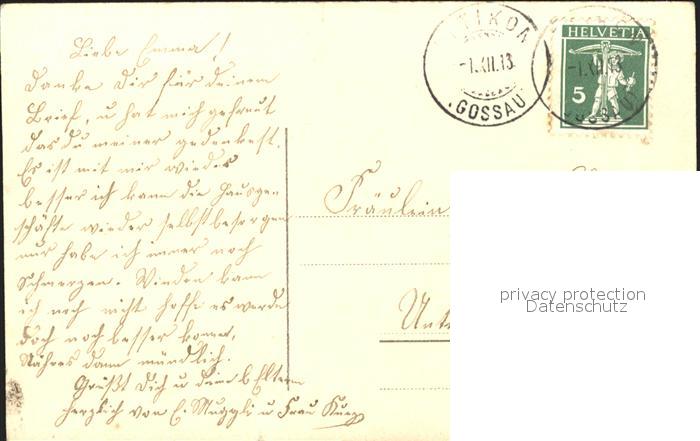 Liebe Emma!
Danke Dir für deinen
Brief, u hat mich gefreut
das du meiner gedenkest.
Es ist mit mir wieder
besser ich kann die Hausge-
schäfte wieder selbst besorgen
nur habe ich immer noch
Schmerzen. kann
ich noch nicht hoffe es werde
doch noch besser kommen,
Näheres dann mündlich.
Grüßt Dich u deine l. Eltern
herzlich von E. Muggli u Frau
GOSSAU
-1.XII.13
HELVETIA
5
Fräulein
Unt
privacy protection
Datenschutz